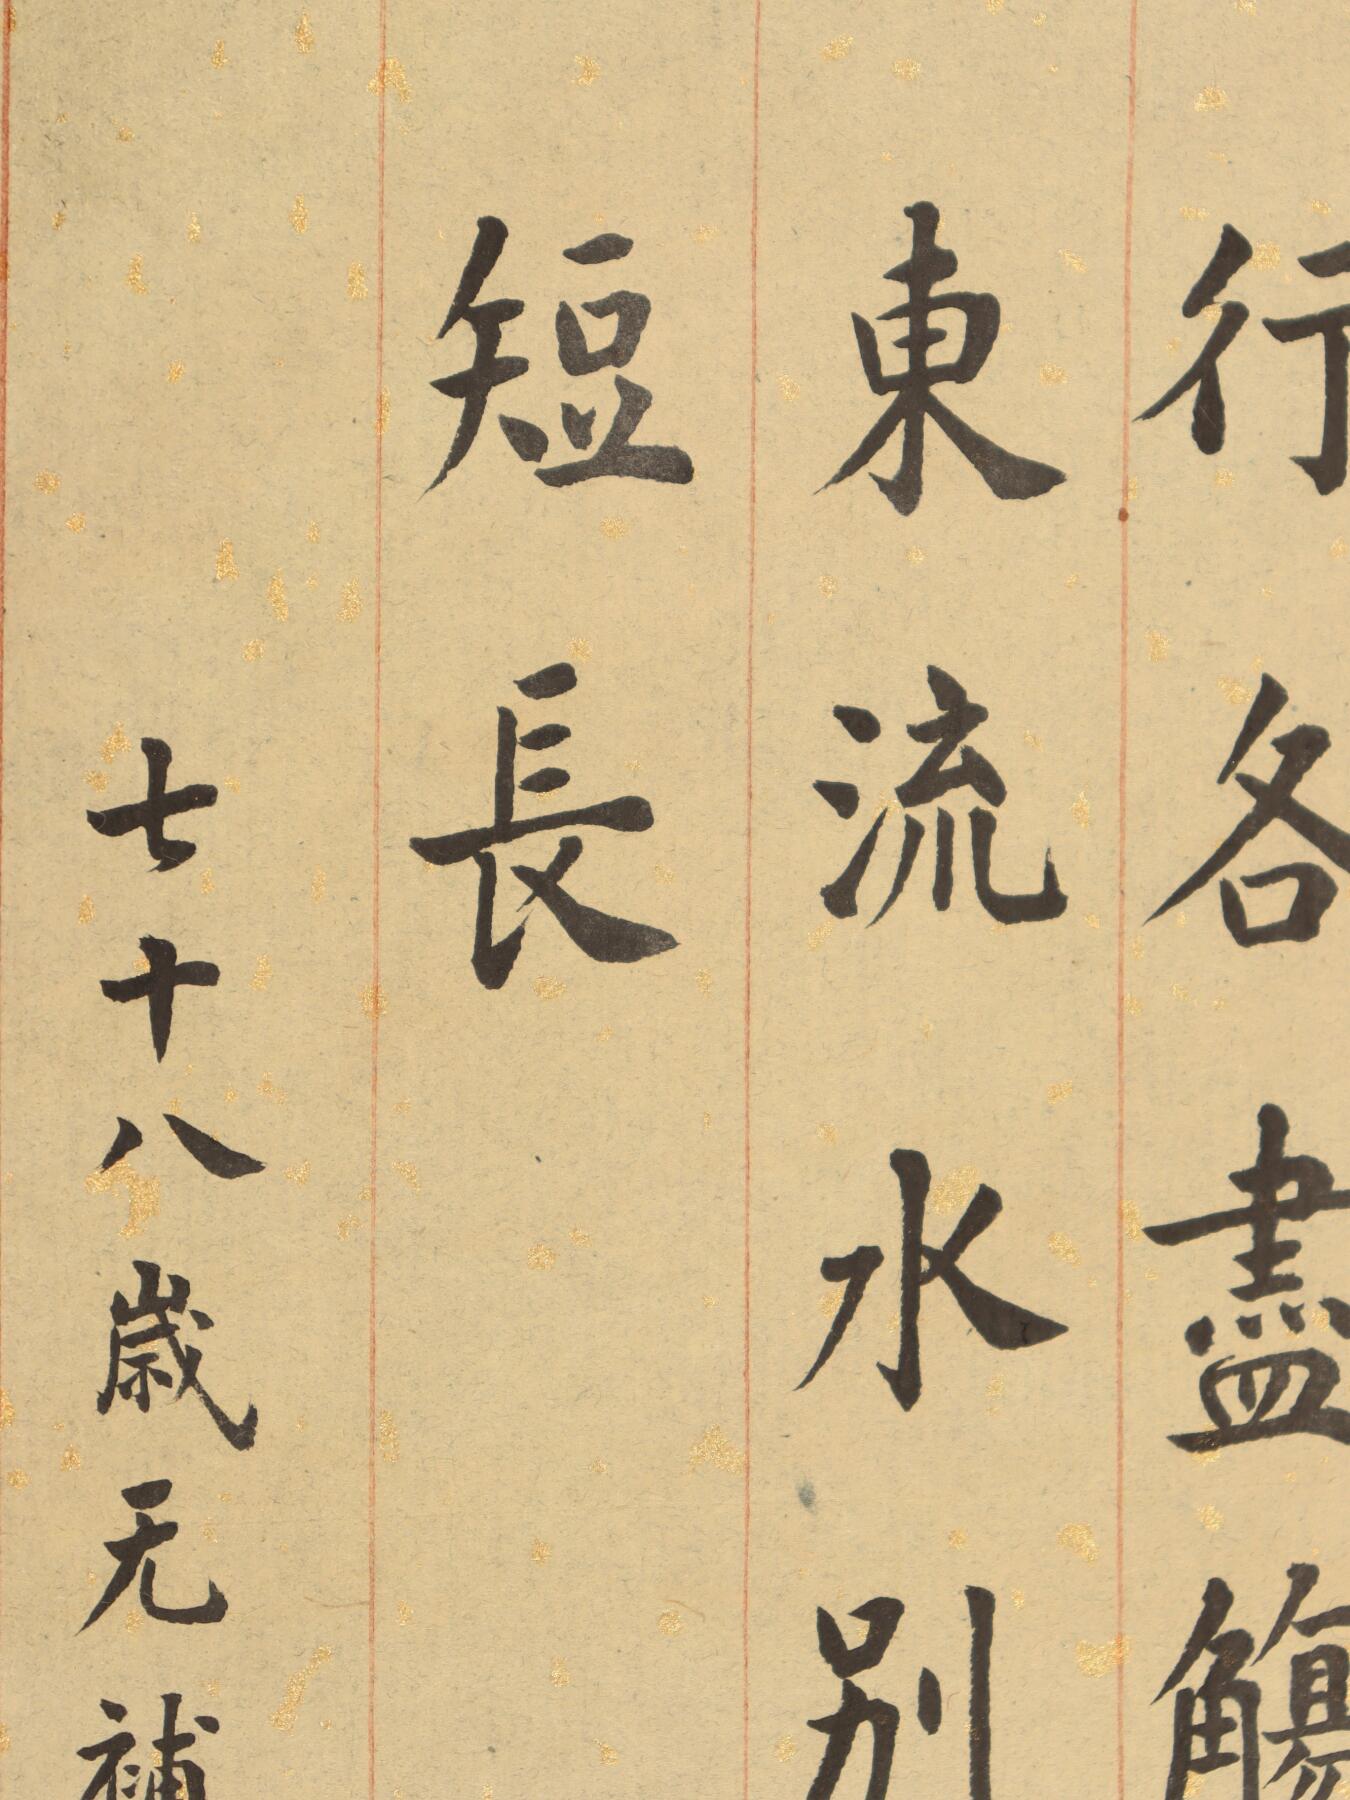 行各盡觴
東流水別
短長
七十八歲无補